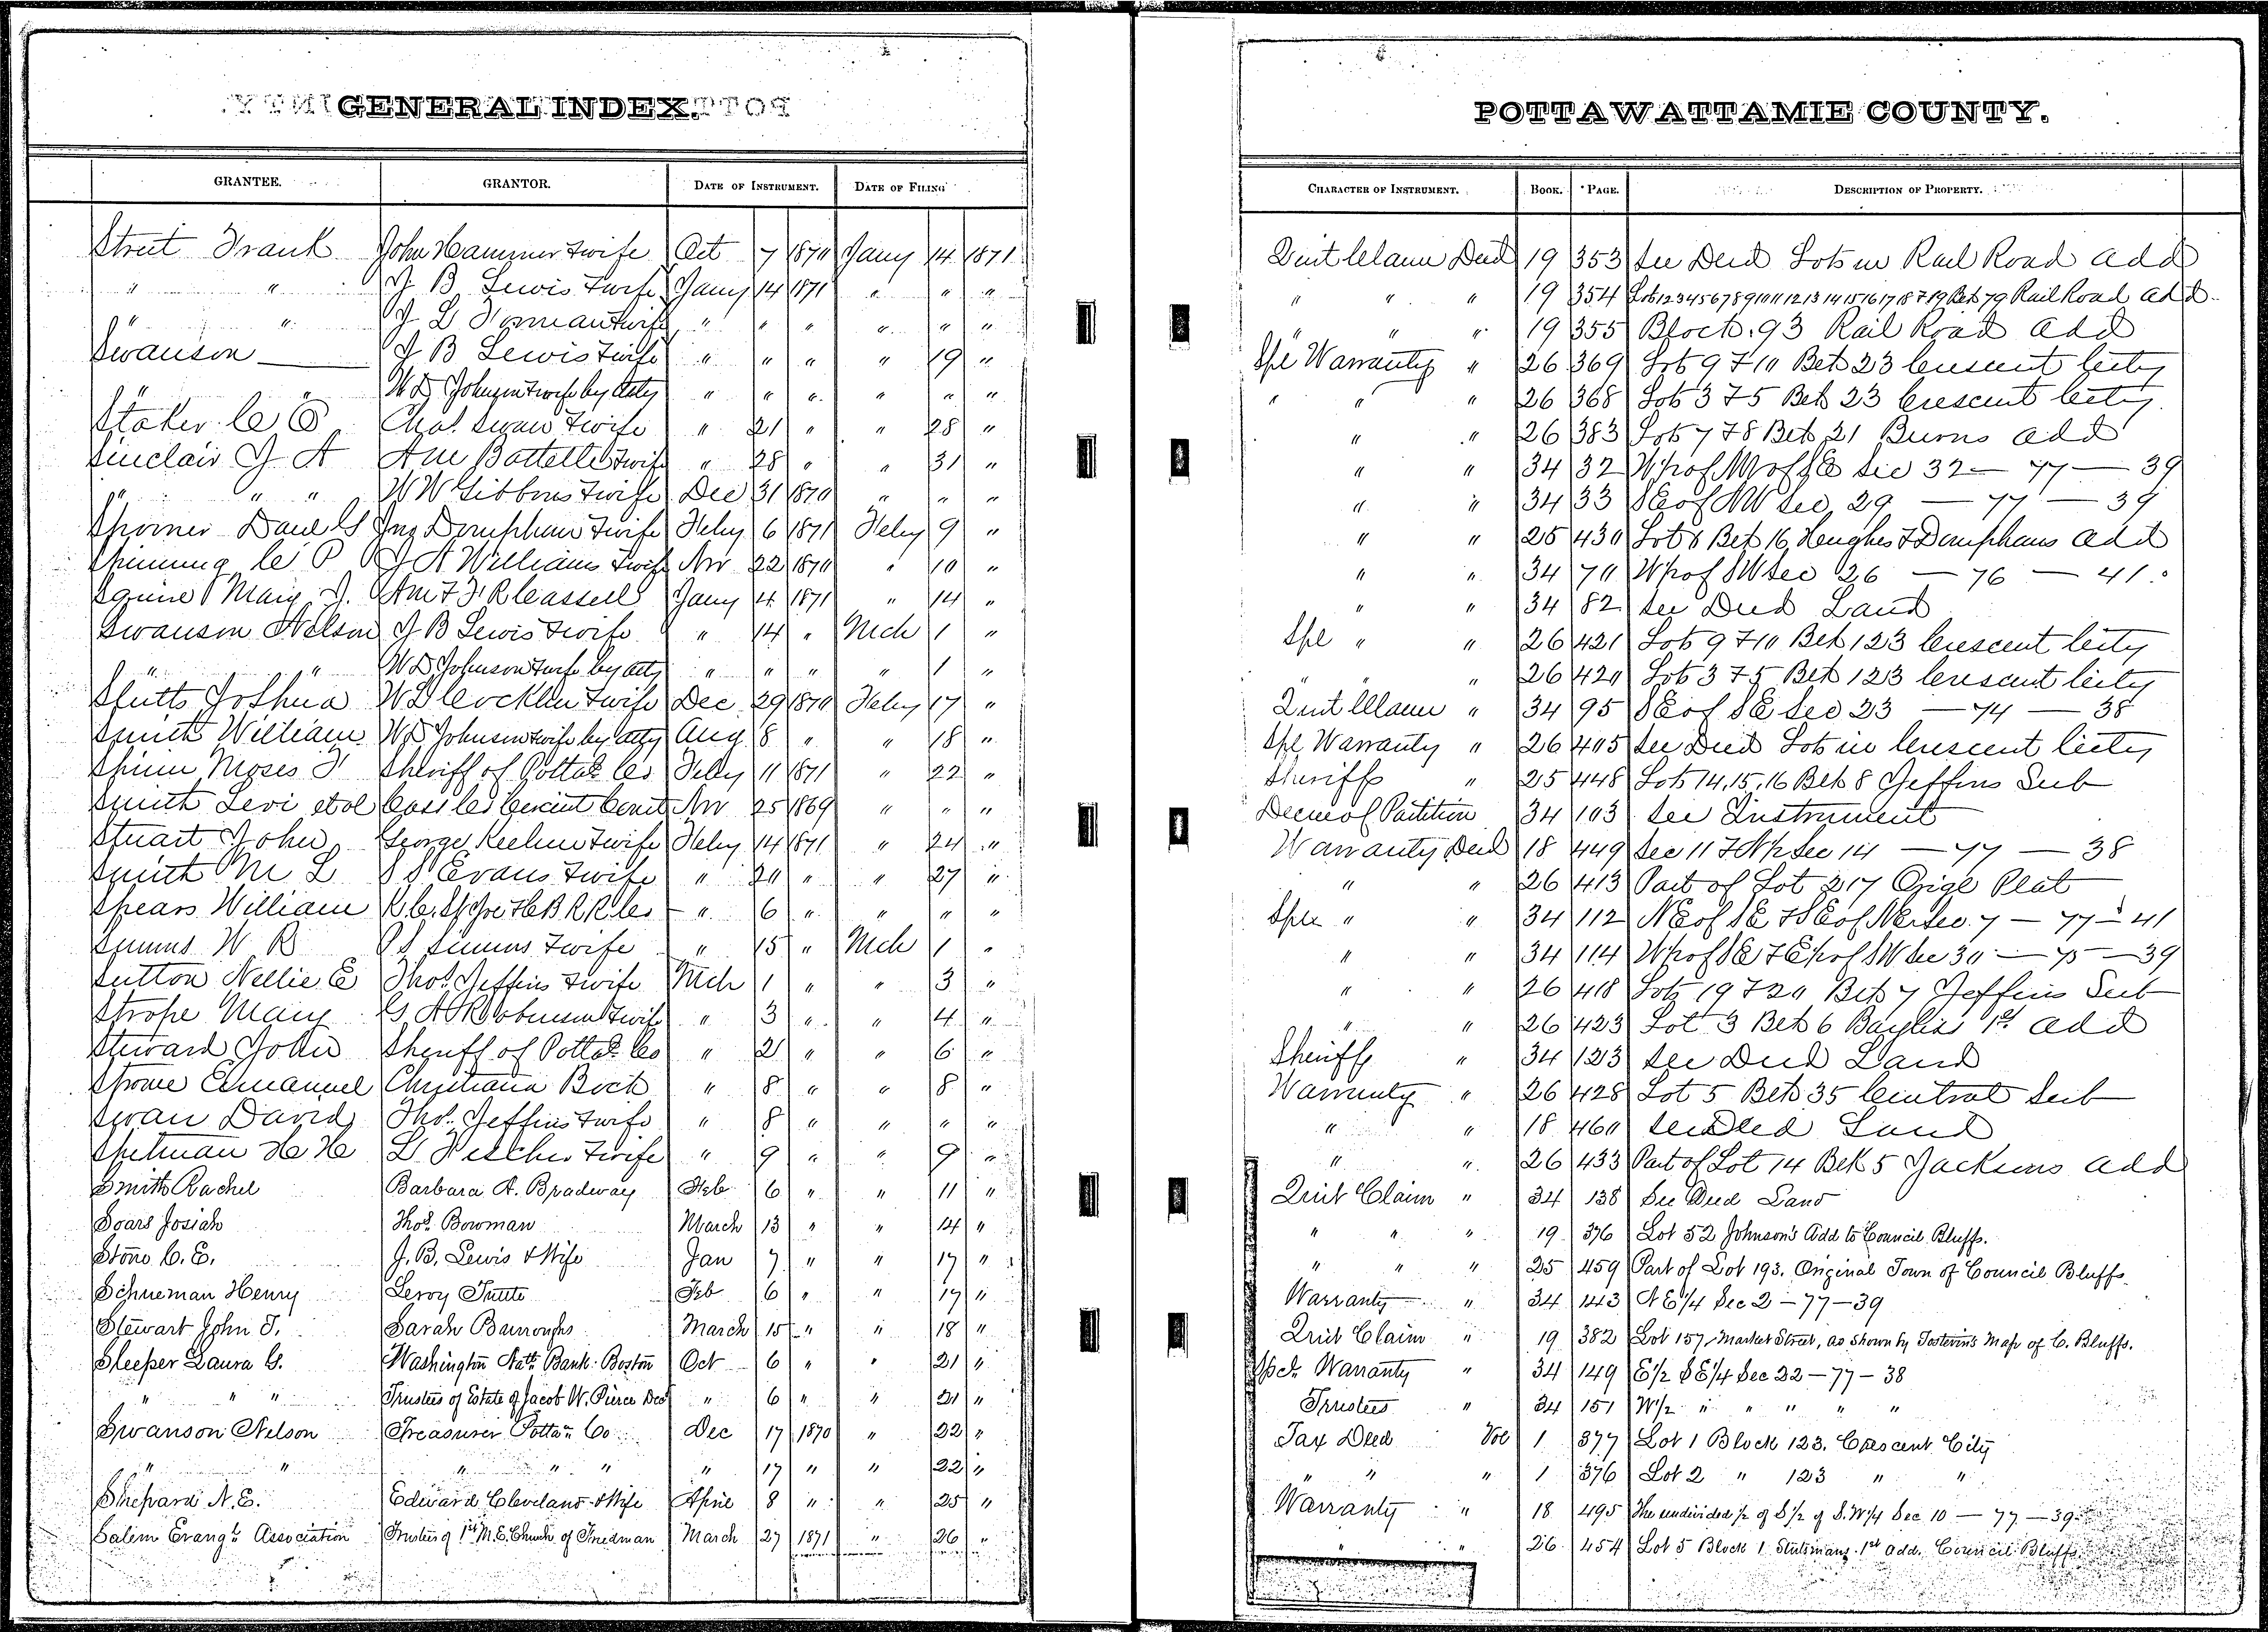 GENERAL INDEX.
GRANTEE. GRANTOR. DATE OF INSTRUMENT. DATE OF FILING
Street Frank John Hammer & wife Oct 7 1870 Jany 14 1871
" " J B Lewis & wife Jany 14 1871 " " "
" " J L & wife " " " " " "
Swanson J B Lewis & wife " " " " 19 "
" " W D Johnson & wife by Atty " " " " " "
Staker C O Chas. Swan & wife " 21 " " 28 "
Sinclair J A Battelle & wife " 28 " " 31 "
" " " W W Gibbons & wife Dec 31 1870 " " "
& wife Feby 6 1871 Feby 9 "
C P J A Williams & wife Nov 22 1870 " 10 "
Squire Mary J. Jany 4 1871 " 14 "
Swanson Nelson J B Lewis & wife " 14 " Mch 1 "
" " W D Johnson & wife by Atty " " " " 1 "
Stutts Joshua & wife Dec 29 1870 Feby 17 "
Smith William W D Johnson & wife by Atty Aug 8 " " 18 "
Shinn Moses F Sheriff of Potta. Co Feby 11 1871 " 22 "
Smith Levi et al Cass Co Circuit Court Nov 25 1869 " " "
Stuart John George Keeline & wife Feby 14 1871 " 24 "
Smith M L S Evans & wife " 20 " " 27 "
Spears William K. C. St Joe & C B R R Co " 6 " " " "
Simms W R P S Simms & wife " 15 " Mch 1 "
Sutton Nellie E Thos. Jeffries & wife Mch 1 " " 3 "
Strope Mary G A Robinson & wife " 3 " " 4 "
Steward John Sheriff of Potta. Co " 2 " " 6 "
Emanuel Christiana Bock " 8 " " 8 "
Swan David Thos. Jeffries & wife " 8 " " " "
Spetman H H L & wife " 9 " " 9 "
Smith Rachel Barbara A. Bradway Feb 6 " " 11 "
Soars Josiah Thos. Bowman March 13 " " 14 "
Stone C. E. J. B. Lewis & Wife Jan 7 " " 17 "
Schueman Henry Leroy Tuttle Feb 6 " " 17 "
Stewart John T. Sarah Burroughs March 15 " " 18 "
Sleeper Laura G. Washington Natl. Bank. Boston Oct 6 " " 21 "
" " " Trustees of Estate of Jacob W. Pierce Decd " 6 " " 21 "
Swanson Nelson Treasurer Potta. Co Dec 17 1870 " 22 "
" " " " " " 17 " " 22 "
Shepard N. E. Edward Cleveland & Wife April 8 " " 25 "
Salem Evangl. Association Trustees of 1st M. E. Church of Friedman March 27 1871 " 26 "
POTTAWATTAMIE COUNTY.
CHARACTER OF INSTRUMENT. BOOK. PAGE. DESCRIPTION OF PROPERTY.
Quit Claim Deed 19 353 See Deed Lots in Rail Road Add
" " " 19 354 Lots 1 2 3 4 5 6 7 8 9 10 11 12 13 14 15 16 17 18 & 19 Blk 79 Rail Road Add.
" " " 19 355 Block 93 Rail Road Add
Spl Warranty " 26 369 Lots 9 & 10 Blk 23 Crescent City
" " " 26 368 Lots 3 & 5 Blk 23 Crescent City
" " 26 383 Lots 7 & 8 Blk 21 Burns Add
" " 34 32 W hf of NW of SE Sec 32 — 77 — 39
" " 34 33 SE of NW Sec 29 — 77 — 39
" " 25 430 Lot 8 Blk 16 Hughes & Doniphans Add
" " 34 70 W hf of SW Sec 26 — 76 — 41.
" " 34 82 See Deed Land
Spl " " 26 421 Lots 9 & 10 Blk 123 Crescent City
" " " 26 420 Lots 3 & 5 Blk 123 Crescent City
Quit Claim " 34 95 SE of SE Sec 23 — 74 — 38
Spl Warranty " 26 405 See Deed Lots in Crescent City
Sheriffs " 25 448 Lots 14, 15, 16 Blk 8 Jeffries Sub
Decree of Partition 34 103 See Instrument
Warranty Deed 18 449 Sec 11 & N ½ Sec 14 — 77 — 38
" " 26 413 Part of Lot 217 Origl Plat
Spl " " 34 112 NE of SE & SE of NE Sec 7 — 77 — 41
" " 34 114 W hf of SE & E hf of SW Sec 30 — 75 — 39
" " 26 418 Lots 19 & 20 Blk 7 Jeffries Sub
" " 26 423 Lot 3 Blk 6 Bayliss 1st Add
Sheriffs " 34 123 See Deed Land
Warranty " 26 428 Lot 5 Blk 35 Central Sub
" " 18 460 See Deed Land
" " 26 433 Part of Lot 14 Blk 5 Jacksons Add
Quit Claim " 34 138 See Deed Land
" " " 19 376 Lot 52 Johnson's Add to Council Bluffs.
" " " 25 459 Part of Lot 193. Original Town of Council Bluffs
Warranty " 34 143 N E ¼ Sec 2 — 77 — 39
Quit Claim " 19 382 Lot 157, Market Street, as shown by Tostevin's Map of C. Bluffs.
Spcl. Warranty " 34 149 E ½ S E ¼ Sec 22 — 77 — 38
Trustees " 34 151 W ½ " " " " "
Tax Deed Vol 1 377 Lot 1 Block 123. Crescent City
" " " 1 376 Lot 2 " 123 " "
Warranty " 18 495 The undivided ½ of S ½ of S. W ¼ Sec 10 — 77 — 39
" " 26 454 Lot 5 Block 1 Stutsmans 1st Add. Council Bluffs